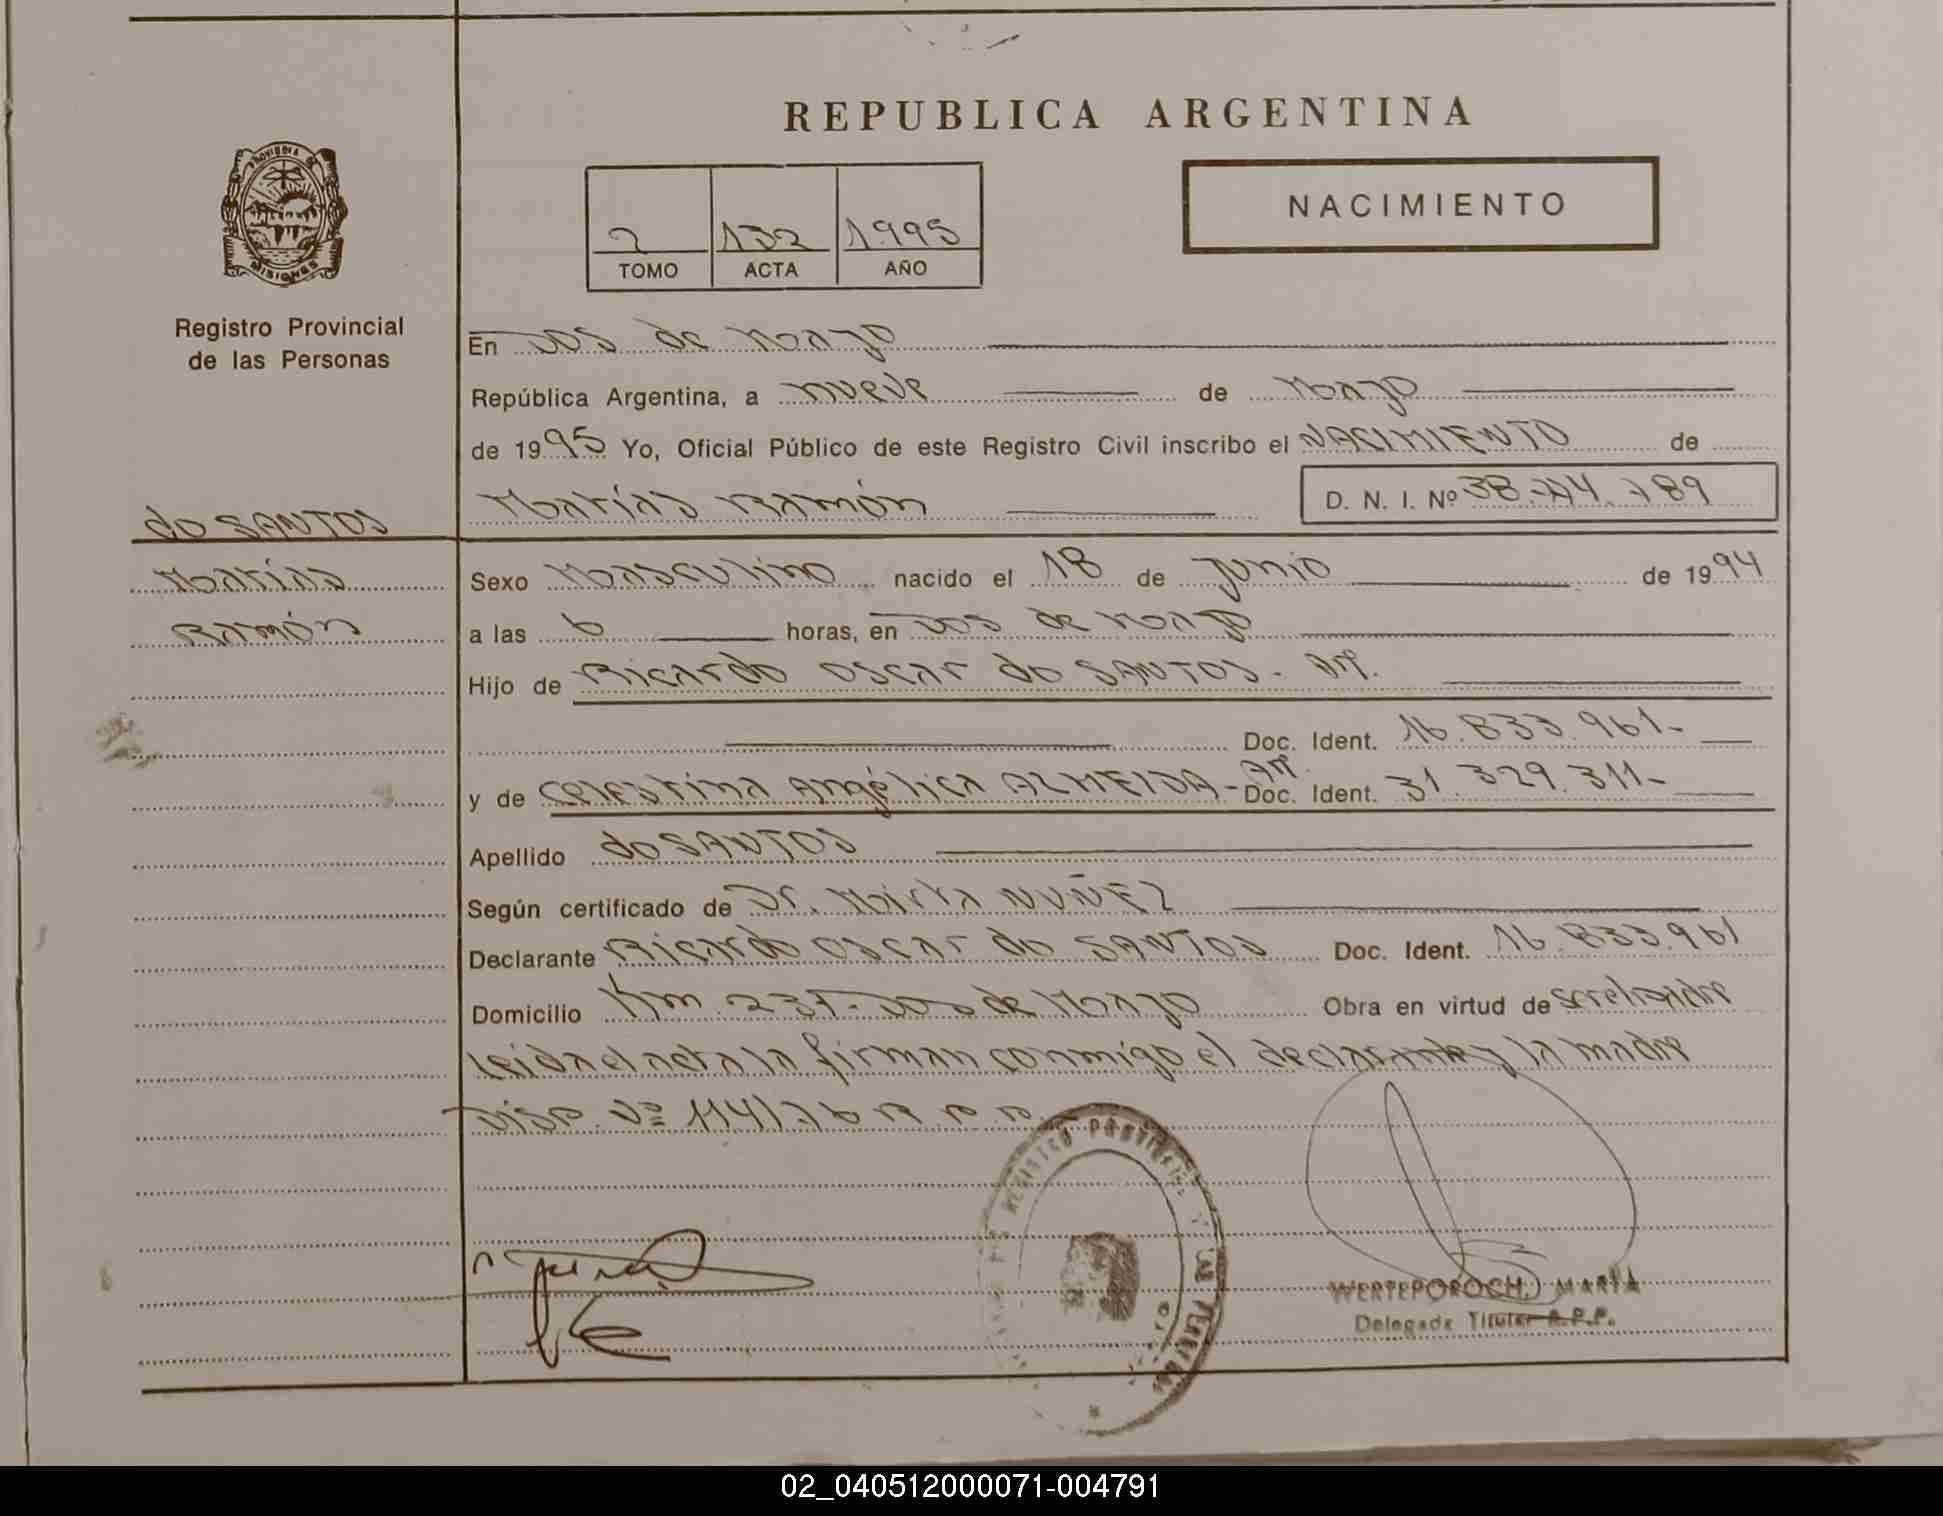 REPUBLICA ARGENTINA
PROVINCIA DE
MISIONES
Registro Provincial
de las Personas
2 132 1995
TOMO ACTA AÑO
NACIMIENTO
En Dos de Mayo
República Argentina, a nueve de Marzo
de 1995 Yo, Oficial Público de este Registro Civil inscribo el NACIMIENTO de
do SANTOS
Matías
Ramón
Matías Ramón D. N. I. Nº
Sexo Masculino nacido el 18 de junio de 1994
a las 6 horas, en Dos de Mayo
Hijo de Ricardo Oscar do SANTOS - Ar.
Doc. Ident. 16.833.961-
y de Celestina Angélica ALMEIDA - Ar. Doc. Ident. 31.329.311-
Apellido do SANTOS
Según certificado de Dr. Mirta NUÑEZ
Declarante Ricardo Oscar do SANTOS Doc. Ident. 16.833.961
Domicilio Km. 237 - Dos de Mayo Obra en virtud de ser el padre
leida el acta la firman conmigo el declarante y la madre
Disp. Nº
REGISTRO PROVINCIAL LAS PERSONAS
WERTEPOROCH, MARIA
Delegada Titular R.P.P.
02_040512000071-004791